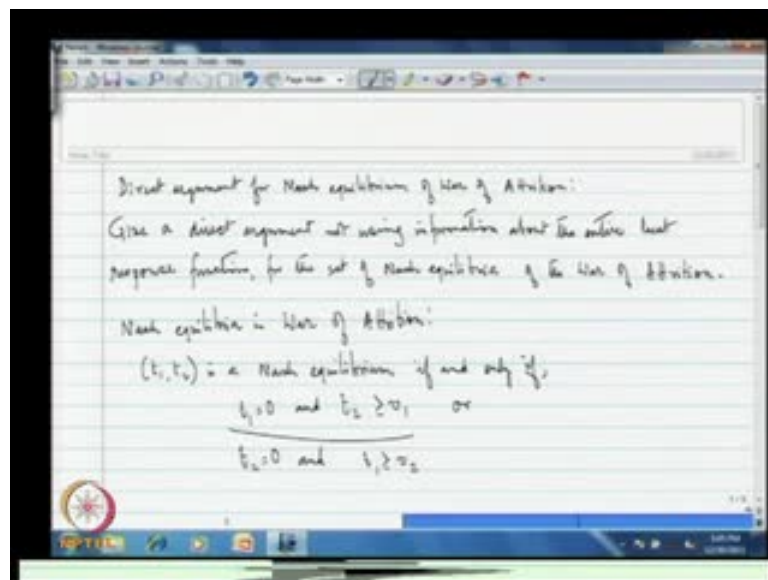 Direct argument for Nash equilibrium of War of Attrition:
Give a direct argument not using information about the entire best
response function, for the set of Nash equilibria of the War of Attrition.
Nash equilibria in War of Attrition:
(t₁, t₂) is a Nash equilibrium if and only if,
t₁=0 and t₂ ≥ v₁ or
t₂=0 and t₁ ≥ v₂
NPTEL